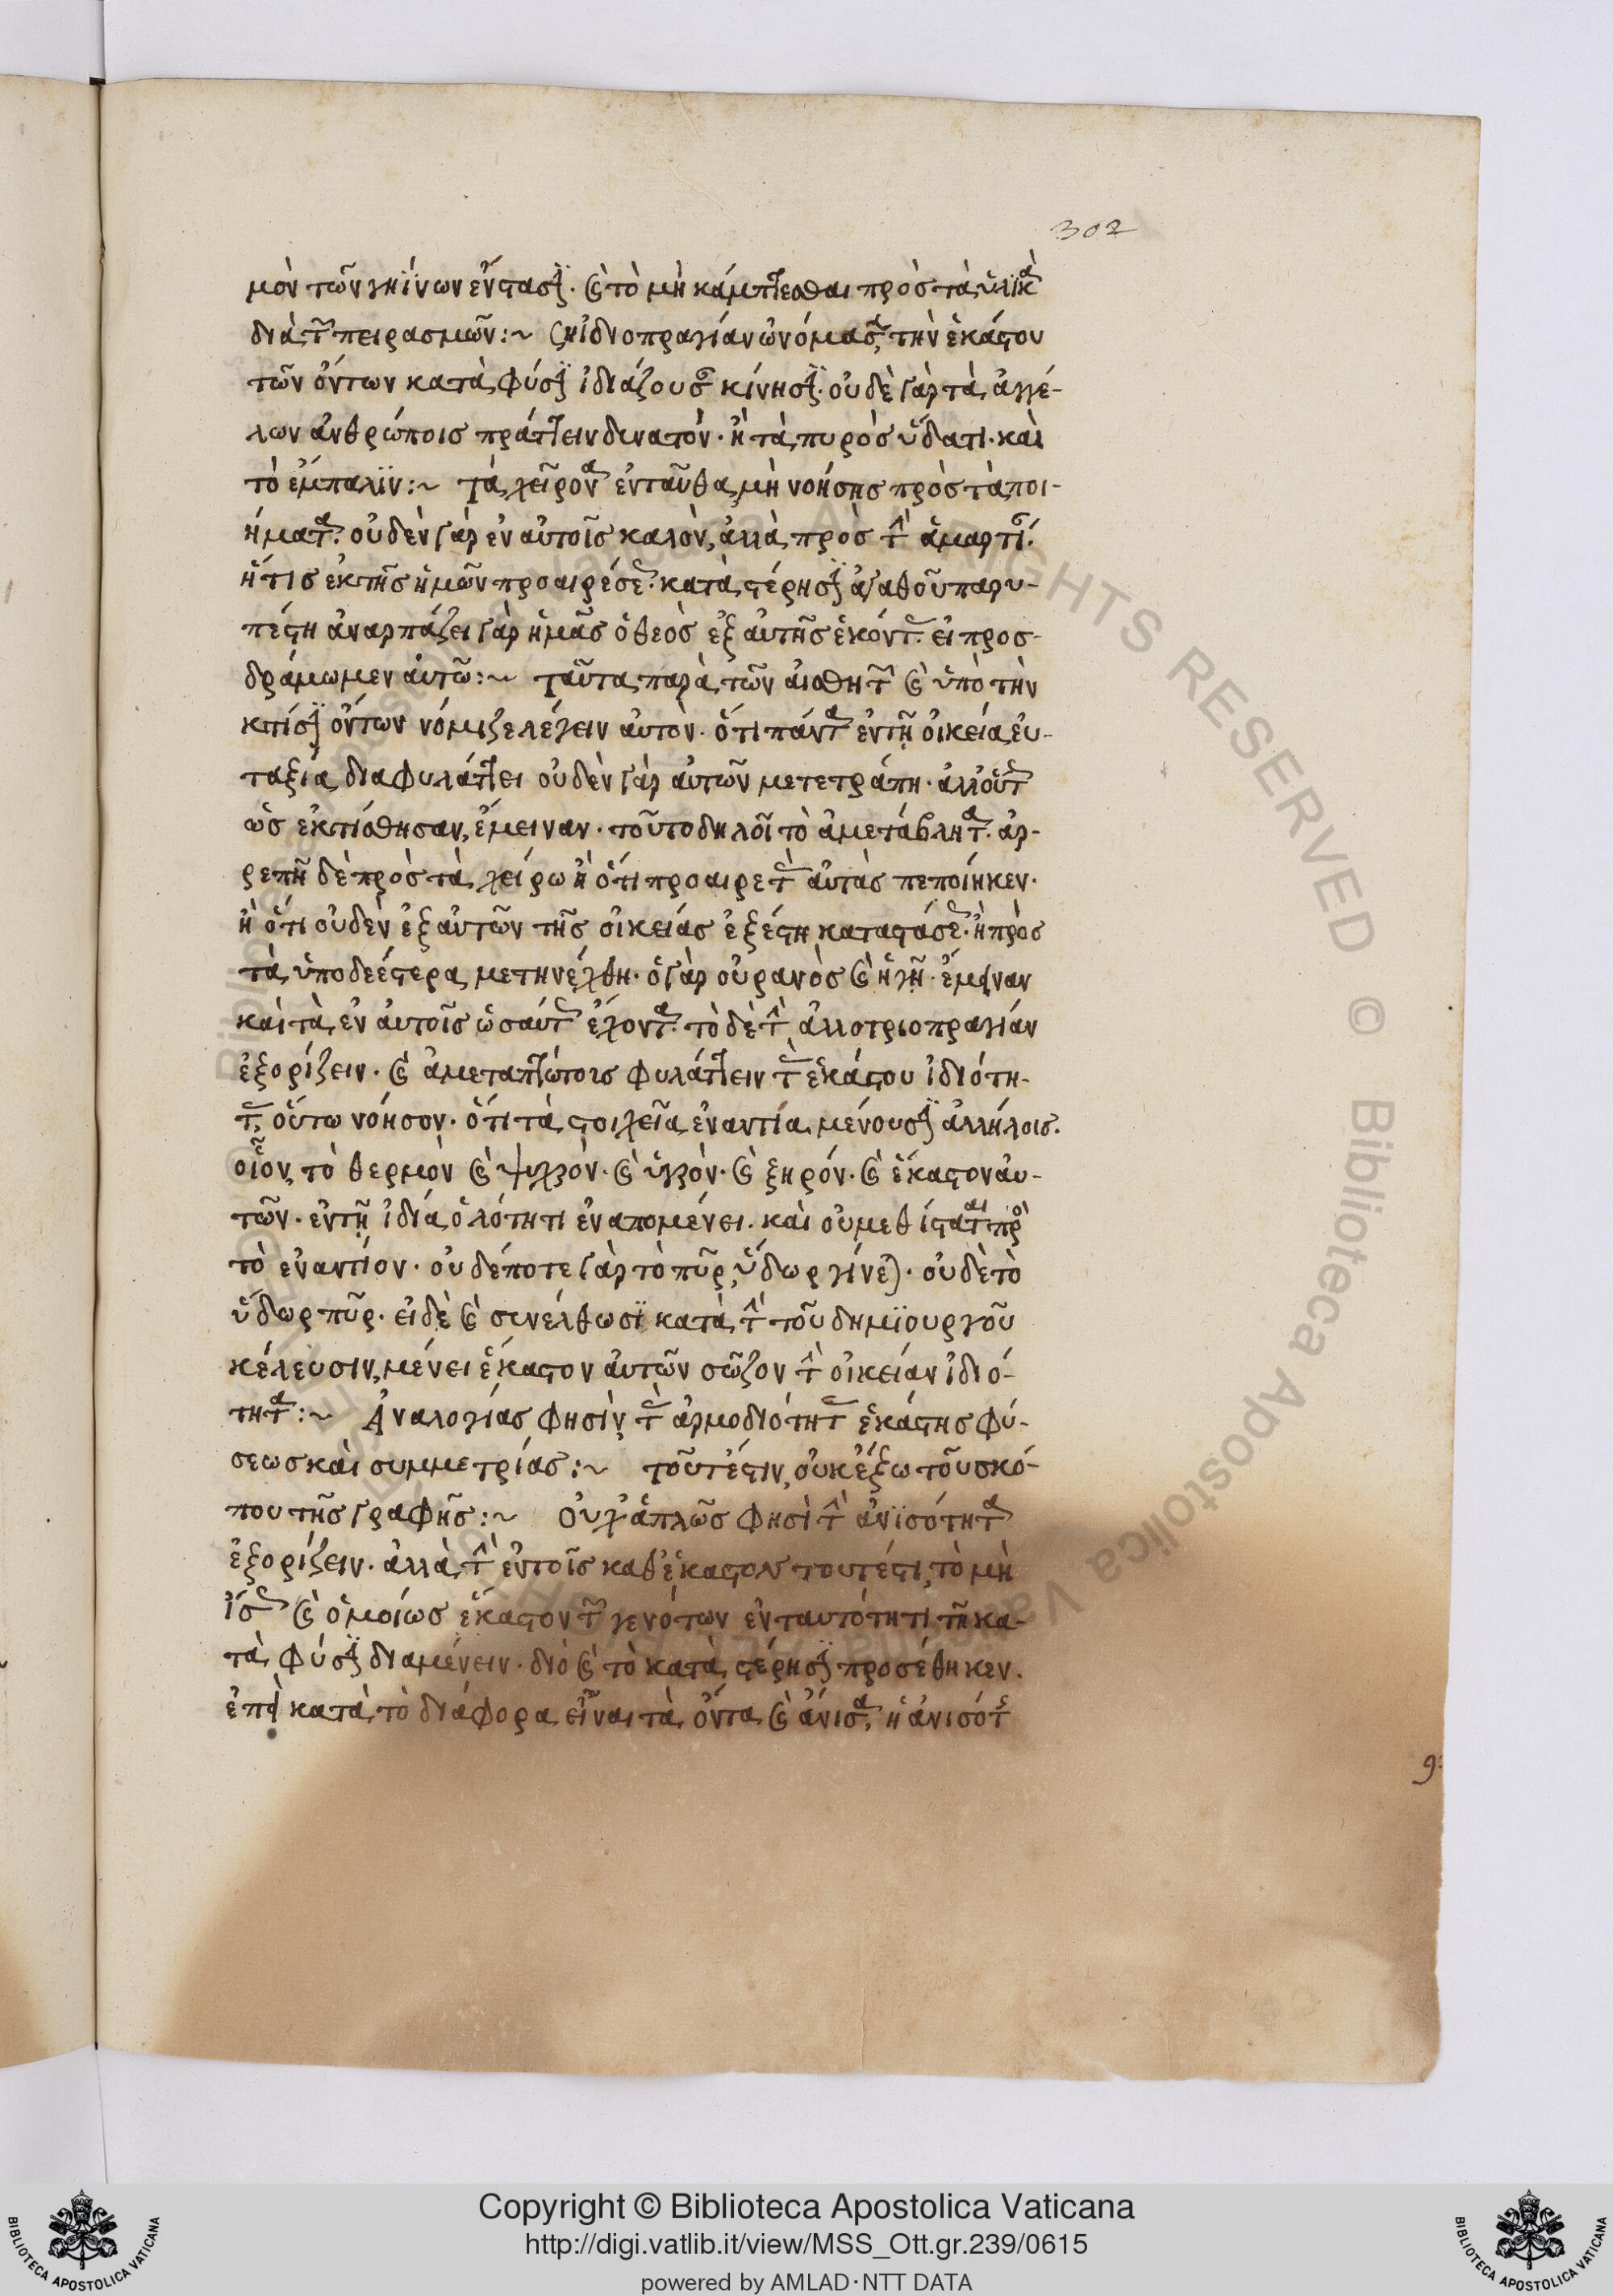 302
μὸν τῶν γηΐνων ἔνστασιν. καὶ τὸ μὴ κάμπτεσθαι πρὸς τὰ ὑλϊκὰ
διὰ τῶν πειρασμῶν :~ ἰδιοπραγίαν ὠνόμασε, τὴν ἑκάστου
τῶν ὄντων κατὰ φύσϊν ἰδιάζουσαν κίνησϊν. οὐδὲ γὰρ τὰ ἀγγέ-
λων ἀνθρώποις πράττειν δυνατόν. ἢ τὰ πυρὸς ὕδατι. καὶ
τὸ ἔμπαλϊν :~ Τὰ χείρονα ἐνταῦθα, μὴ νοήσης πρὸς τὰ ποι-
ήματα. οὐδὲν γὰρ ἐν αὐτοῖς καλὸν, ἀλλὰ πρὸς τὴν ἁμαρτίαν.
ἥτις ἐκ τῆς ἡμῶν προαιρέσεως. κατὰ στέρησϊν ἀγαθοῦ παρυ-
πέστη ἀναρπάζει γὰρ ἡμᾶς ὁ θεὸς ἐξ αὐτῆς ἑκόντας. εἰ προσ-
δράμωμεν αὐτῶ :~ Ταῦτα παρὰ τῶν αἰσθητῶν καὶ ὑπὸ τὴν
κτίσϊν ὄντων νόμιζε λέγειν αὐτὸν. ὅτι πάντα ἐν τῇ οἰκεία εὐ-
ταξία διαφυλάττει οὐδὲν γὰρ αὐτῶν μετετράπη. ἀλλ' οὕτως
ὡς ἐκτίσθησαν, ἔμειναν. τοῦτο δηλοῖ τὸ ἀμετάβλητα. ἀρ-
ρεπῆ δὲ πρὸς τὰ χείρω ἢ ὅτι προαιρετὰς αὐτὰς πεποίηκεν.
ἢ ὅτι οὐδὲν ἐξ αὐτῶν τῆς οἰκείας ἐξέστη καταστάσεως. ἢ πρὸς
τὰ ὑποδεέστερα μετηνέχθη. ὁ γὰρ οὐρανὸς καὶ ἡ γῆ. ἔμειναν
καὶ τὰ ἐν αὐτοῖς ὡσαύτως ἔχοντα. τὸ δὲ τὴν ἀλλοτριοπραγίαν
ἐξορίζειν. καὶ ἀμεταπτώτοις φυλάττειν τὰς ἑκάστου ἰδιότη-
τας, οὕτω νόησον. ὅτι τὰ στοιχεῖα ἐναντία μένουσϊν ἀλλήλοις.
οἷον, τὸ θερμὸν καὶ ψυχρὸν. καὶ ὑγρὸν. καὶ ξηρόν. καὶ ἕκαστον αὐ-
τῶν. ἐν τῇ ἰδία ὁλότητι ἐναπομένει. καὶ οὐ μεθίσταται πρὸς
τὸ ἐναντίον. οὐδέποτε γὰρ τὸ πῦρ, ὕδωρ γίνεται. οὐδὲ τὸ
ὕδωρ πῦρ. εἰ δὲ καὶ συνέλθωσϊ κατὰ τὴν τοῦ δημϊουργοῦ
κέλευσιν, μένει ἕκαστον αὐτῶν σῶζον τὴν οἰκείαν ἰδιό-
τητα :~ Ἀναλογίας φησὶν, τὰς ἁρμοδιότητας ἑκάστης φύ-
σεως καὶ συμμετρίας :~ τοῦτέστιν, οὐκ ἔξω τοῦ σκό-
που τῆς γραφῆς :~ Οὐχ ἁπλῶς φησὶ τὴν ἀνϊσότητα
ἐξορίζειν. ἀλλὰ τὴν ἐν τοῖς καθ' ἕκαστον τουτέστι, τὸ μὴ
ἴσως καὶ ὁμοίως ἕκαστον τῶν γενότων ἐν ταυτότητι τῆ κα-
τὰ φύσϊν διαμένειν. διὸ καὶ τὸ κατὰ στέρησϊν προσέθηκεν.
ἐπεὶ κατὰ τὸ διάφορα εἶναι τὰ ὄντα καὶ ἄνισα, ἡ ἀνισότης
Copyright © Biblioteca Apostolica Vaticana
http://digi.vatlib.it/view/MSS_Ott.gr.239/0615
powered by AMLAD·NTT DATA